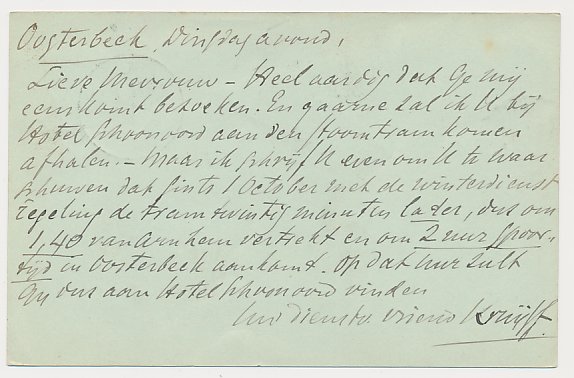 Oosterbeek, Dinsdagavond,
Lieve Mevrouw – Heel aardig dat Ge mij
eens komt bezoeken. En gaarne zal ik U bij
Hotel Schoonoord aan den stoomtram komen
afhalen. – Maar ik schrijf U even om U te waar-
schuwen dat sints 1 October met de winterdienst
regeling de tram twintig minuten later, dus om
1,40 van Arnhem vertrekt en om 2 uur spoor-
tijd in Oosterbeek aankomt. Op dat uur zult
Gij dus aan Hotel Schoonoord vinden
Uw dienstv. vriend Kruijff.